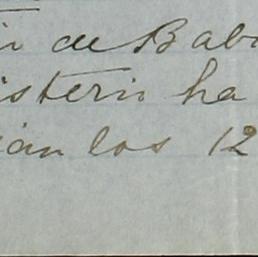 de Bab
isterio ha
ian los 12